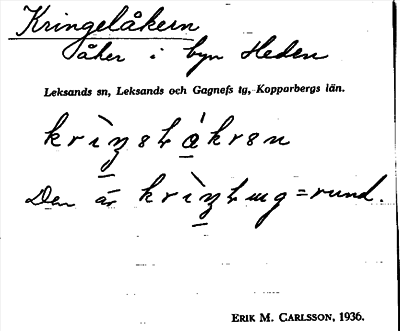 Kringelåkern
åker i byn Heden
Leksands sn, Leksands och Gagnefs tg, Kopparbergs län.
Den är = rund.
ERIK M. CARLSSON, 1936.